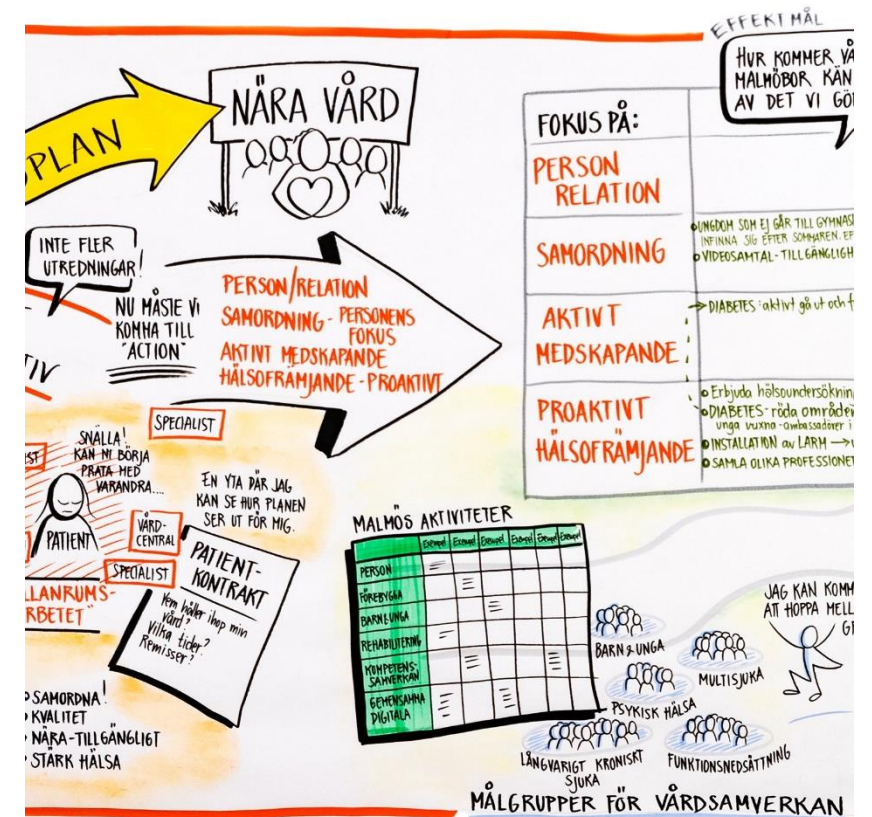 EFFEKTMÅL
HUR KOMMER
MALMÖBOR KÄN
AV DET VI GÖ
NÄRA VÅRD
PLAN
INTE FLER
UTREDNINGAR!
NU MÅSTE VI
KOMMA TILL
"ACTION"
PERSON/RELATION
SAMORDNING - PERSONENS
FOKUS
AKTIVT MEDSKAPANDE
HÄLSOFRÄMJANDE - PROAKTIVT
TIV
FOKUS PÅ:
PERSON
RELATION
SAMORDNING
UNGDOM SOM EJ GÅR TILL GYMNAS
INFINNA SIG EFTER SOMMAREN. EF
VIDEOSAMTAL - TILLGÄNGLIGH
AKTIVT
MEDSKAPANDE
DIABETES: aktivt gå ut och f
PROAKTIVT
HÄLSOFRÄMJANDE
Erbjuda hälsoundersöknin
DIABETES - röda områden
unga vuxna - ambassadörer i
INSTALLATION av LARM →
SAMLA OLIKA PROFESSIONE
SPECIALIST
IST
SNÄLLA!
KAN NI BÖRJA
PRATA MED
VARANDRA....
PATIENT
VÅRD-
CENTRAL
SPECIALIST
LLANRUMS-
RBETET"
EN YTA DÄR JAG
KAN SE HUR PLANEN
SER UT FÖR MIG.
PATIENT-
KONTRAKT
Vem håller ihop min
vård?
Vilka tider?
Remisser?
SAMORDNA!
KVALITET
NÄRA-TILLGÄNGLIGT
STÄRK HÄLSA
MALMÖS AKTIVITETER
Exempel Exempel Exempel Exempel Exempel Exempel
PERSON
FÖREBYGGA
BARN & UNGA
REHABILITERING
KOMPETENS-
SAMVERKAN
GEMENSAMMA
DIGITALA
JAG KAN KOMM
ATT HOPPA MELL
GR
BARN & UNGA
MULTISJUKA
PSYKISK HÄLSA
LÅNGVARIGT KRONISKT
SJUKA
FUNKTIONSNEDSÄTTNING
MÅLGRUPPER FÖR VÅRDSAMVERKAN